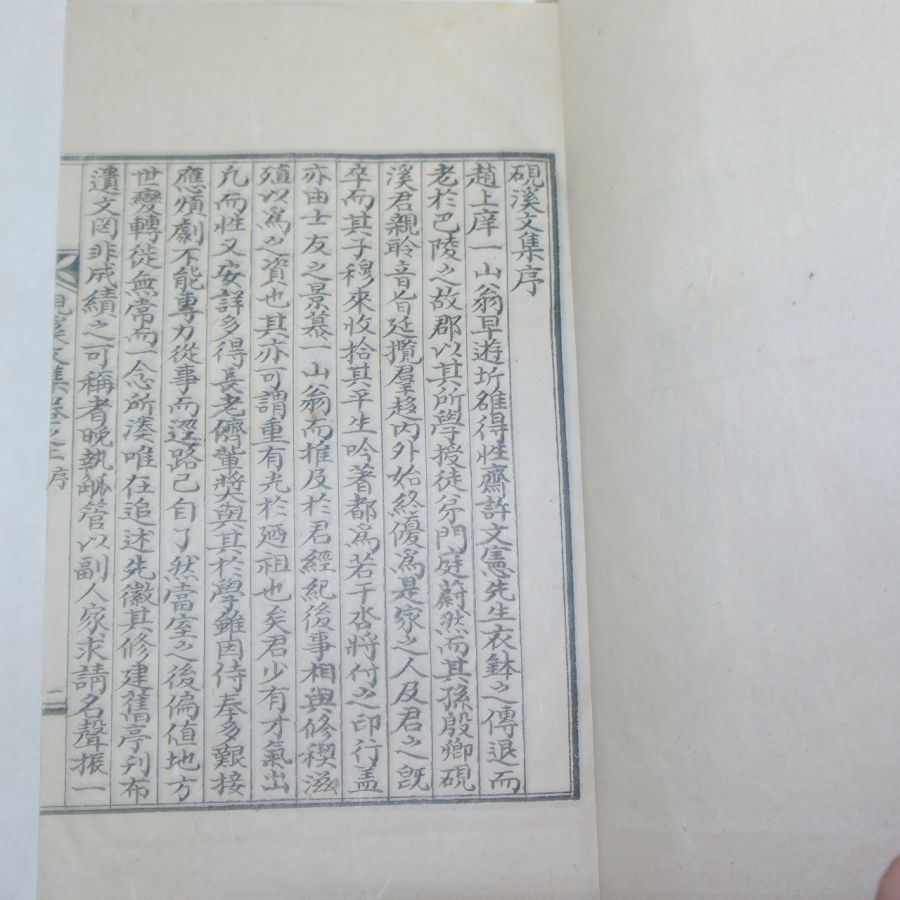 硯溪文集序
趙上庠一山翁早遊圻雒得性齋許文憲先生衣鉢之傳退而
老於巴陵之故鄉以其所學授徒於門庭蔚然而其孫殷卿硯
溪君親聆音旨延攬羣趍內外始終優爲是家之人及君之旣
卒而其子穆來收拾其平生吟著都爲若干沓將付之印行盖
亦由士友之景慕一山翁而推及於君經紀後事相與修稧滋
殖以爲之資也其亦可謂重有光於廼祖也矣君少有才氣出
凡而性又安詳多得長老儕輩獎與其於學雖因侍奉多艱接
應煩劇不能專力從事而逕路已自了然當室之後偏值地方
世變轉徙無常而一念所湊唯在追述先徽其修建舊亭列布
遺文罔非成績之可稱者晚執觚管以副人家求請名聲振一
硯溪文集卷之一 序 二